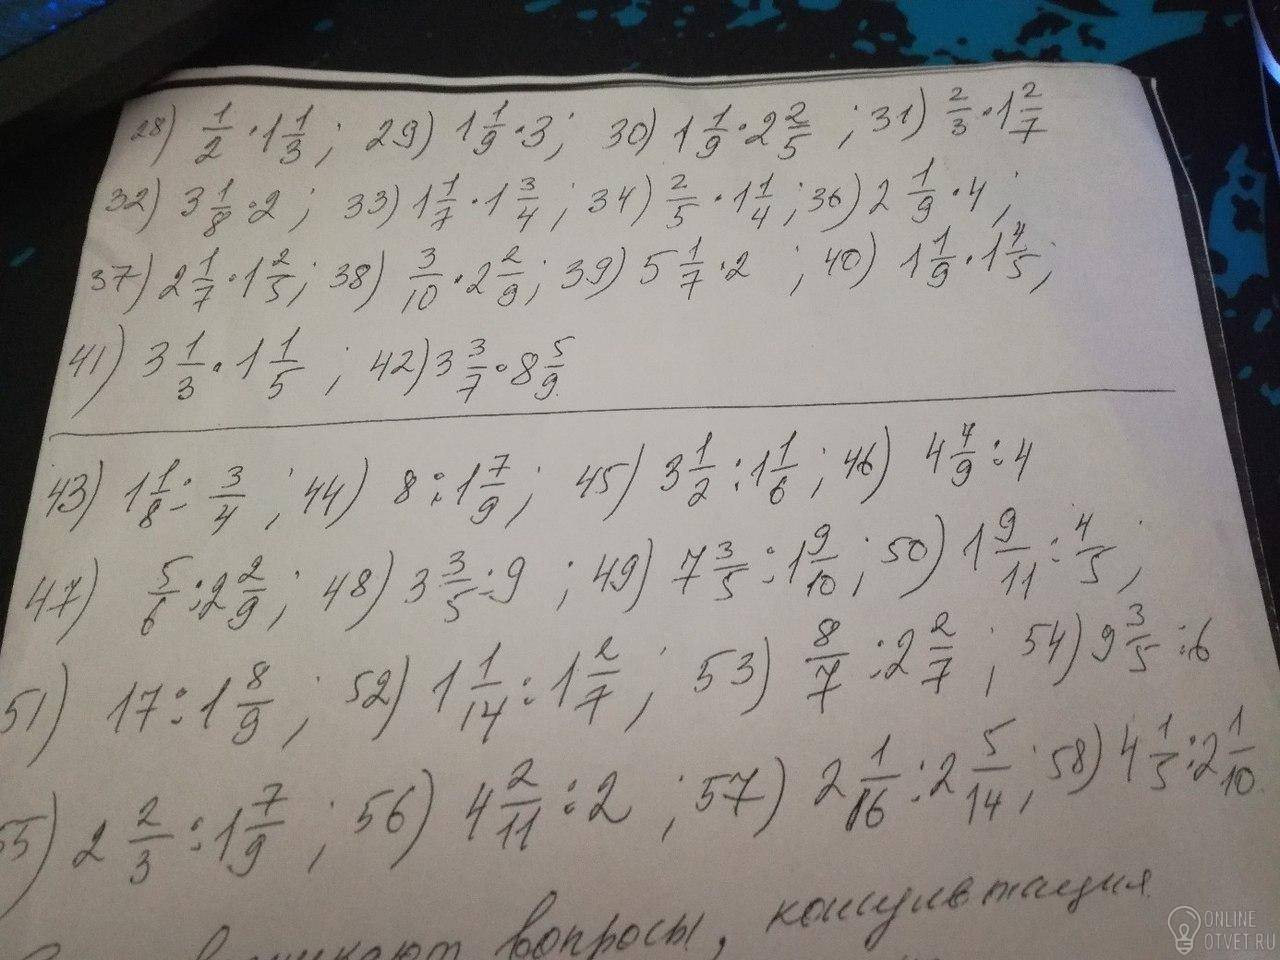 28) 1/2 · 1 1/3 ; 29) 1 1/9 · 3 ; 30) 1 1/9 · 2 2/5 ; 31) 2/3 · 1 2/7
32) 3 1/8 · 2 ; 33) 1 1/7 · 1 3/4 ; 34) 2/5 · 1 1/4 ; 36) 2 1/9 · 4 ;
37) 2 1/7 · 1 2/5 ; 38) 3/10 · 2 2/9 ; 39) 5 1/7 · 2 ; 40) 1 1/9 · 1 4/5 ;
41) 3 1/3 · 1 1/5 ; 42) 3 3/7 · 8 5/9.
43) 1 1/8 : 3/4 ; 44) 8 : 1 7/9 ; 45) 3 1/2 : 1 1/6 ; 46) 4 4/9 : 4
47) 5/6 : 2 2/9 ; 48) 3 3/5 : 9 ; 49) 7 3/5 : 1 9/10 ; 50) 1 9/11 : 4/5 ;
51) 17 : 1 8/9 ; 52) 1 1/14 : 1 2/7 ; 53) 8/7 : 2 2/7 ; 54) 9 3/5 : 6
55) 2 2/3 : 1 7/9 ; 56) 4 2/11 : 2 ; 57) 2 1/16 : 2 5/14 ; 58) 4 1/5 : 2 1/10.
вопросы, консультация
ONLINE
OTVET.RU